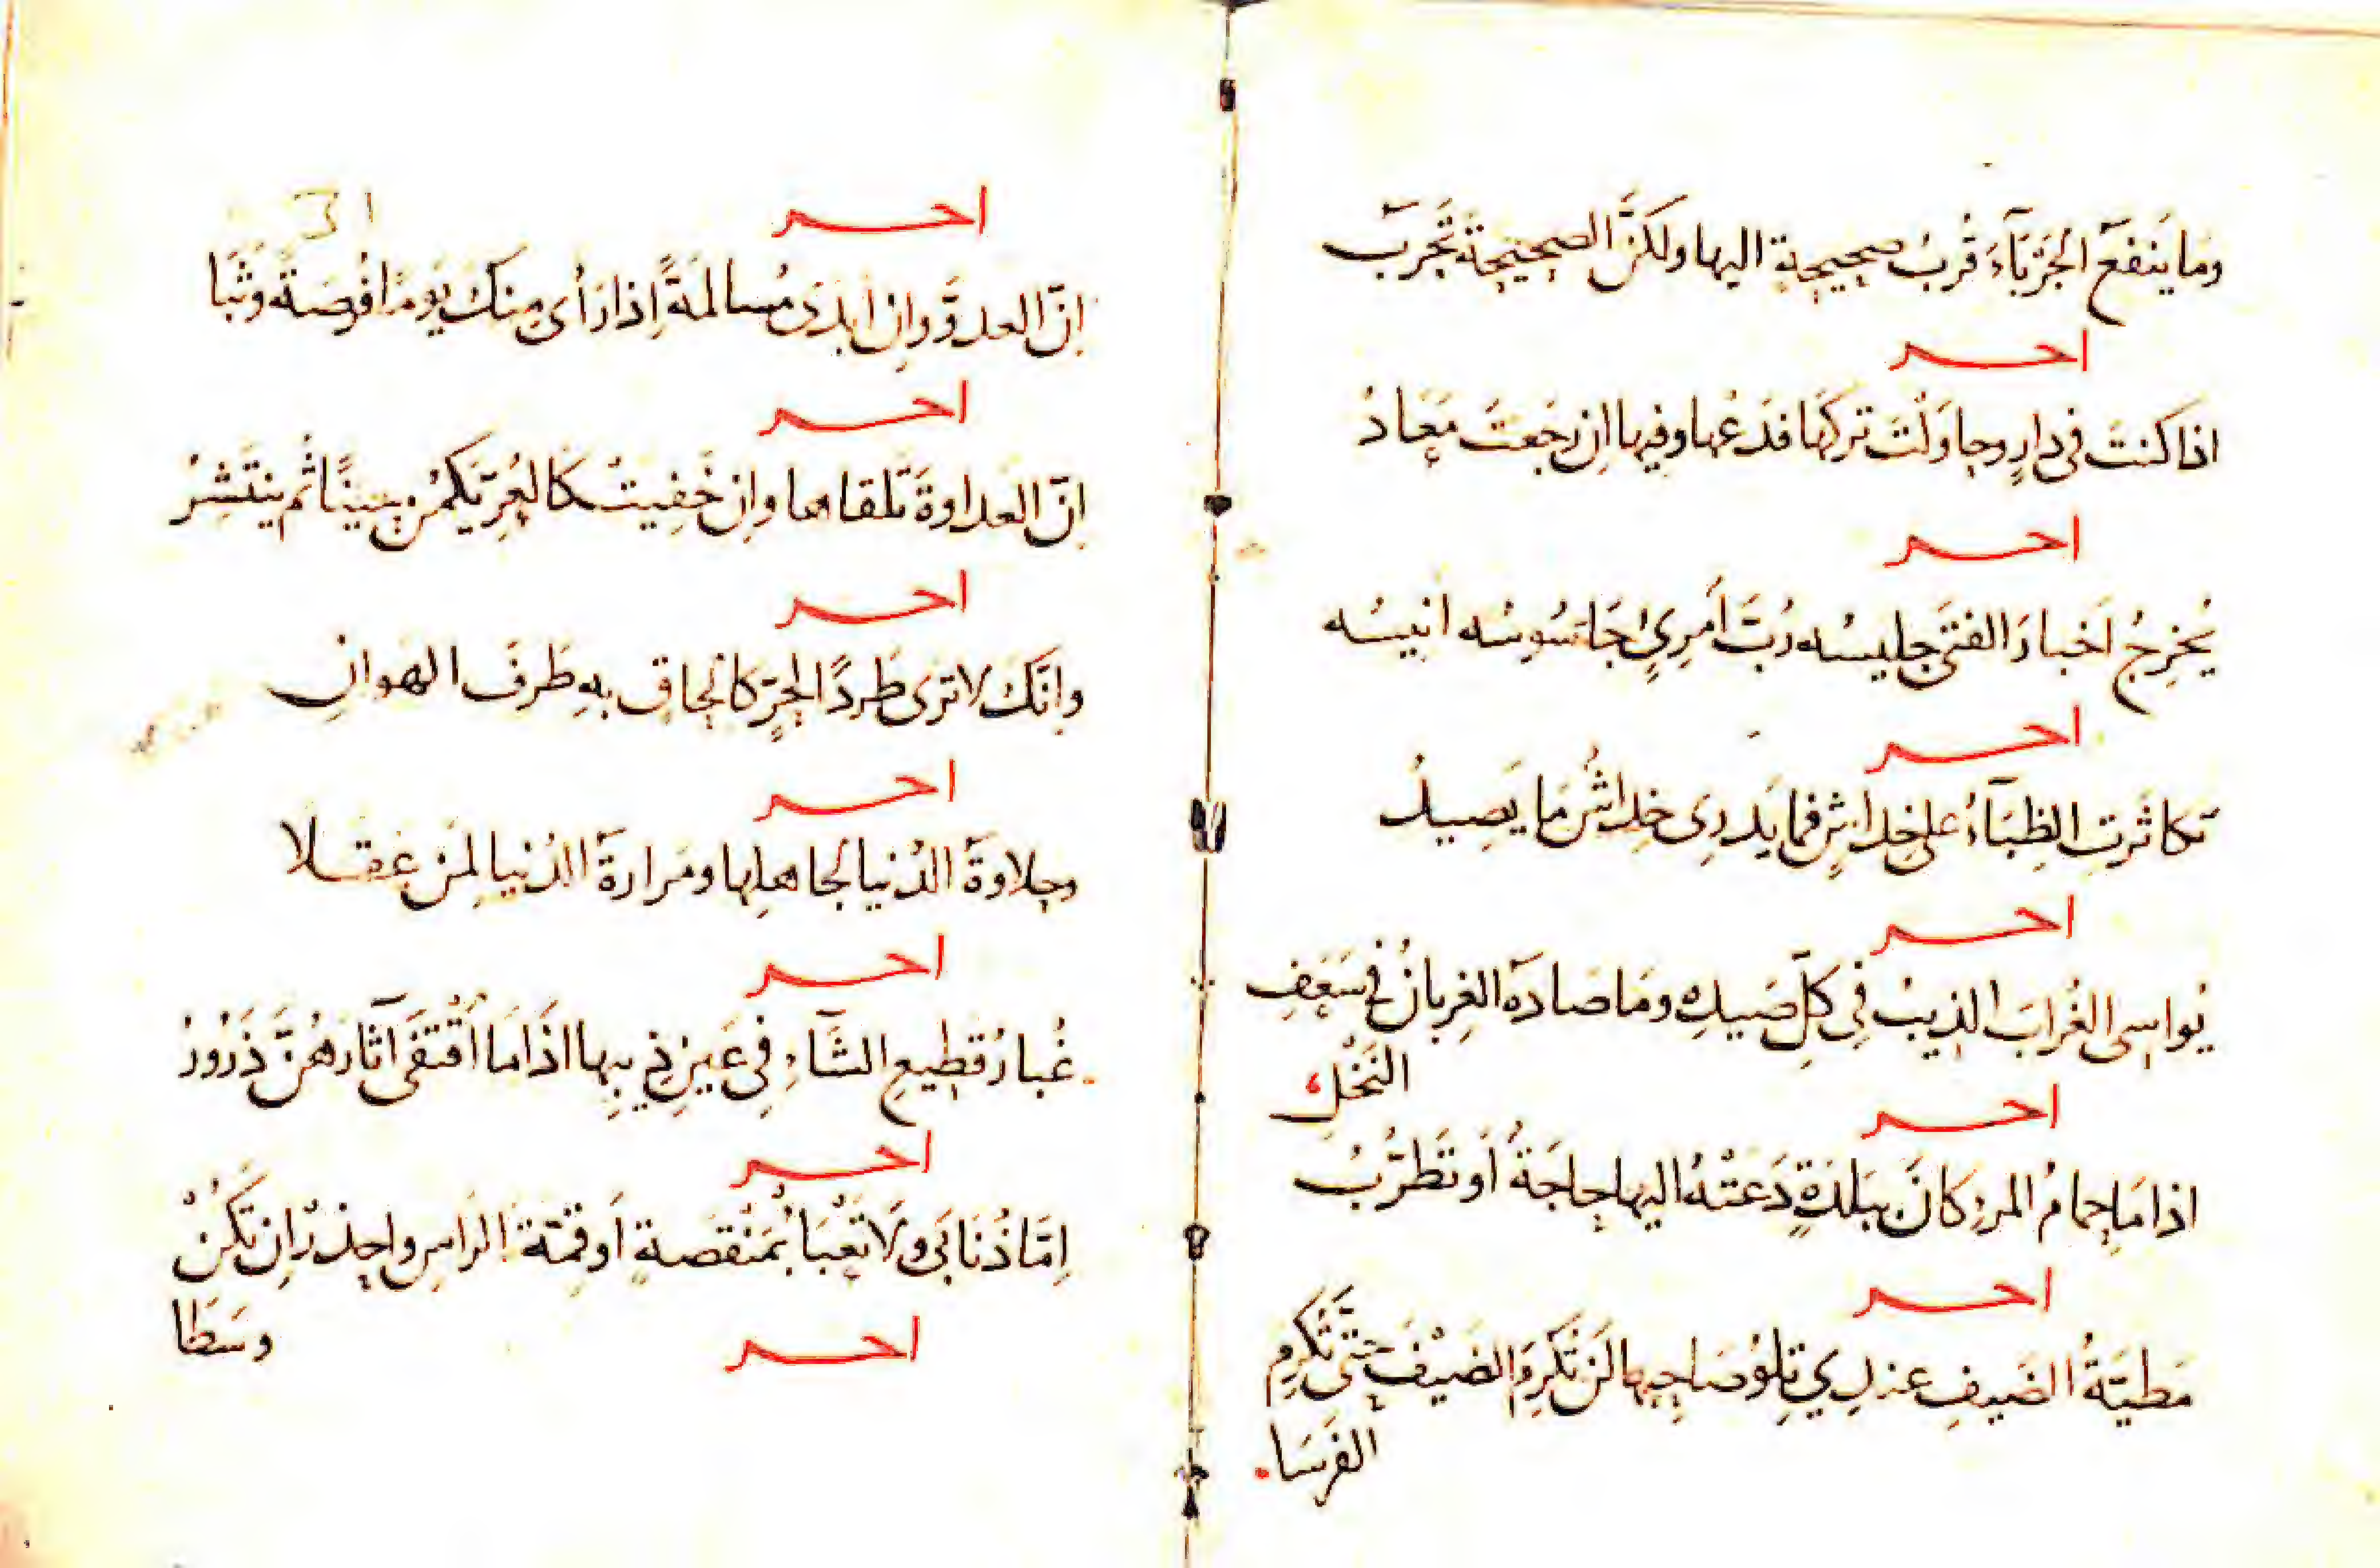 وما يَنفَعُ الجَرْبَآءَ قُربُ صحيحةٍ اليها ولكنَّ الصحيحةَ تَجْرَبُ
اخر
اذا كنتَ في دارٍ وحاوَلْتَ تركَهَا فدَعْها وفيها اِن رَجَعتَ مَعَادُ
اخر
يُخرِجُ اَخبارَ الفتَى جليسُه رُبَّ اَمرِئٍ جَاسُوسُه انيسُه
اخر
تَكاثَرتِ الظِبَآءُ على خِداشٍ فما يَدرِى خِداشٌ مَا يَصِيدُ
اخر
يُواسِى الغُرابَ الذيبُ فِى كلِّ صَيدِه ومَا صَادَهُ الغِربانُ في سَعَفِ
النَخْلِ
اخر
اذا مَا حِمامُ المرءِ كانَ ببَلدَةٍ دَعَتْهُ اليها حاجَةٌ اَو تَطَرُّبُ
اخر
مَطيَّةُ الضَيفِ عندِي تِلْوُ صَاحِبِها لَن تُكرِمَ الضَيْفَ حتّى تُكرِمِ
الفَرَسَا
اخر
اِنّ العدوَّ واِن اَبدَى مُسالمةً اِذا رَاَى مِنكَ يومًا فُرصَةً وَثَبَا
اخر
اِنّ العداوةَ تَلقاها واِن خَفِيَتْ كَالعُرِّ يَكمُن حِينًا ثُم ينتَشِرُ
اخر
واِنَّكَ لا ترى طردًا لحُرٍّ كالحاقٍ بهِ طَرفَ الهوانِ
اخر
وحلاوةُ الدُنيا لجاهلِها ومَرارةُ الدُنيا لمَن عقلا
اخر
غُبارُ قطيعِ الشَّاءِ فِى عَينِ ذِيبِها اذَا مَا اَقْتَفَى آثارَهُنَّ ذَرُورُ
اخر
اِمَّا ذُنَابَى ولَا تَعْبَا بمَنْقصةٍ اَو قمّةَ الرَاسِ واحذرْ اِن تَكُنْ
وسَطَا
اخر